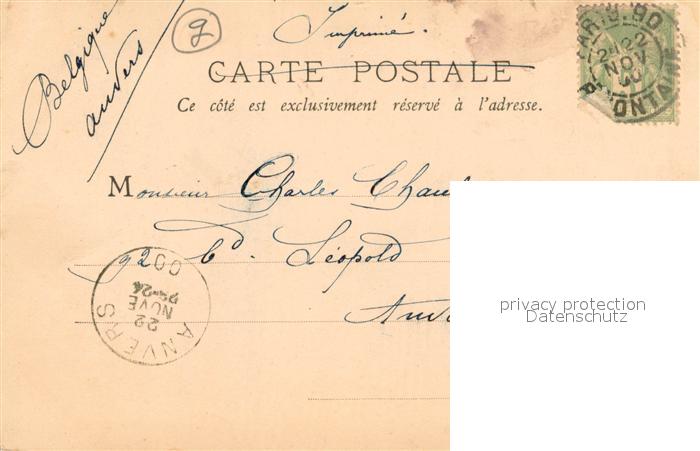 Belgique
anvers
9
Imprimé.
CARTE POSTALE
Ce côté est exclusivement réservé à l'adresse.
22
NOV
Monsieur Charles
92 bd. Léopold
ANVERS
22
NOVE
00
privacy protection
Datenschutz